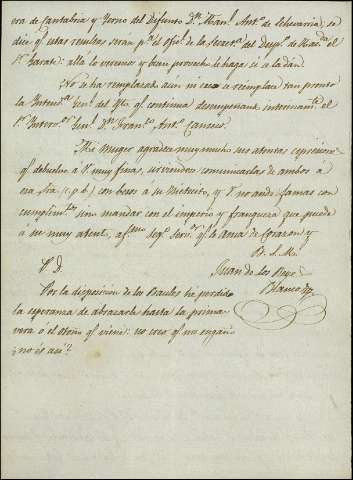 era de Cantabria y Yerno del Difunto Dn. Man.l Ant.o de Echevarria; se
dice q.e estas resultas serán p.a el ofic.l de la Secret.a del Desp.o de Hac.da el
S.r Zarate: allá lo veremos y buen provecho le haga si se la dán.
No se há remplazado aún ni creo se remplaze tan pronto
la Intend.a Gen.l del que continua desempeñando interinam.te el
S.r Interv.or Gen.l Dn. Fran.co Ant.o Canseco.
Mi muger agradece muy mucho sus atentas expresiones
q.e debuelve á V. muy finas, sirviendose comunicarlas de ambos á
esa Sra. (c.p.b.) con besos a su Nietecito, y V no ande jamas con
cumplim.tos sino mandar con el imperio y franqueza que puede
á su muy atent. af.mo seg.o serv.or q.e le Ama de Corazon y
B. S. M.
Juan de los Reyes
Blanco
P. D.
Por la disposicion de los Baules hé perdido
la esperanza de abrazarle hasta la prima-
vera ó el otoño q.e viene: no creo q.e me engaño
¿no es asi?